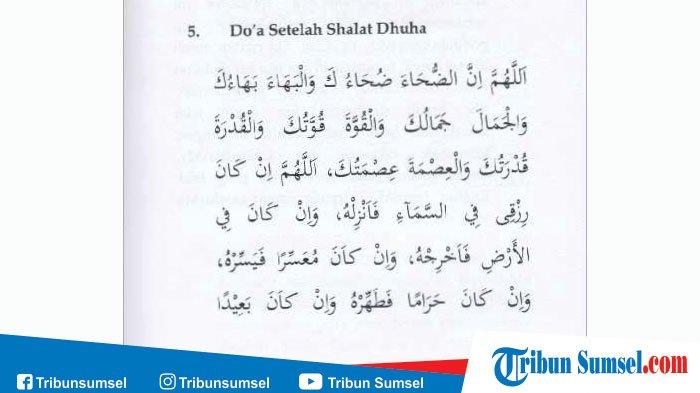 5. Do'a Setelah Shalat Dhuha
اَللّٰهُمَّ اِنَّ الضُّحَاءَ ضُحَاءُ كَ وَالْبَهَاءَ بَهَاءُكَ
وَالْجَمَالَ جَمَالُكَ وَالْقُوَّةَ قُوَّتُكَ وَالْقُدْرَةَ
قُدْرَتُكَ وَالْعِصْمَةَ عِصْمَتُكَ، اَللّٰهُمَّ اِنْ كَانَ
رِزْقِى فِي السَّمَآءِ فَاَنْزِلْهُ، وَاِنْ كَانَ فِي
الأَرْضِ فَاَخْرِجْهُ، وَاِنْ كاَنَ مُعَسِّرًا فَيَسِّرْهُ،
وَاِنْ كَانَ حَرَامًا فَطَهِّرْهُ وَاِنْ كاَنَ بَعِيْدًا
Tribun Sumsel.com
Tribunsumsel Tribunsumsel Tribun Sumsel